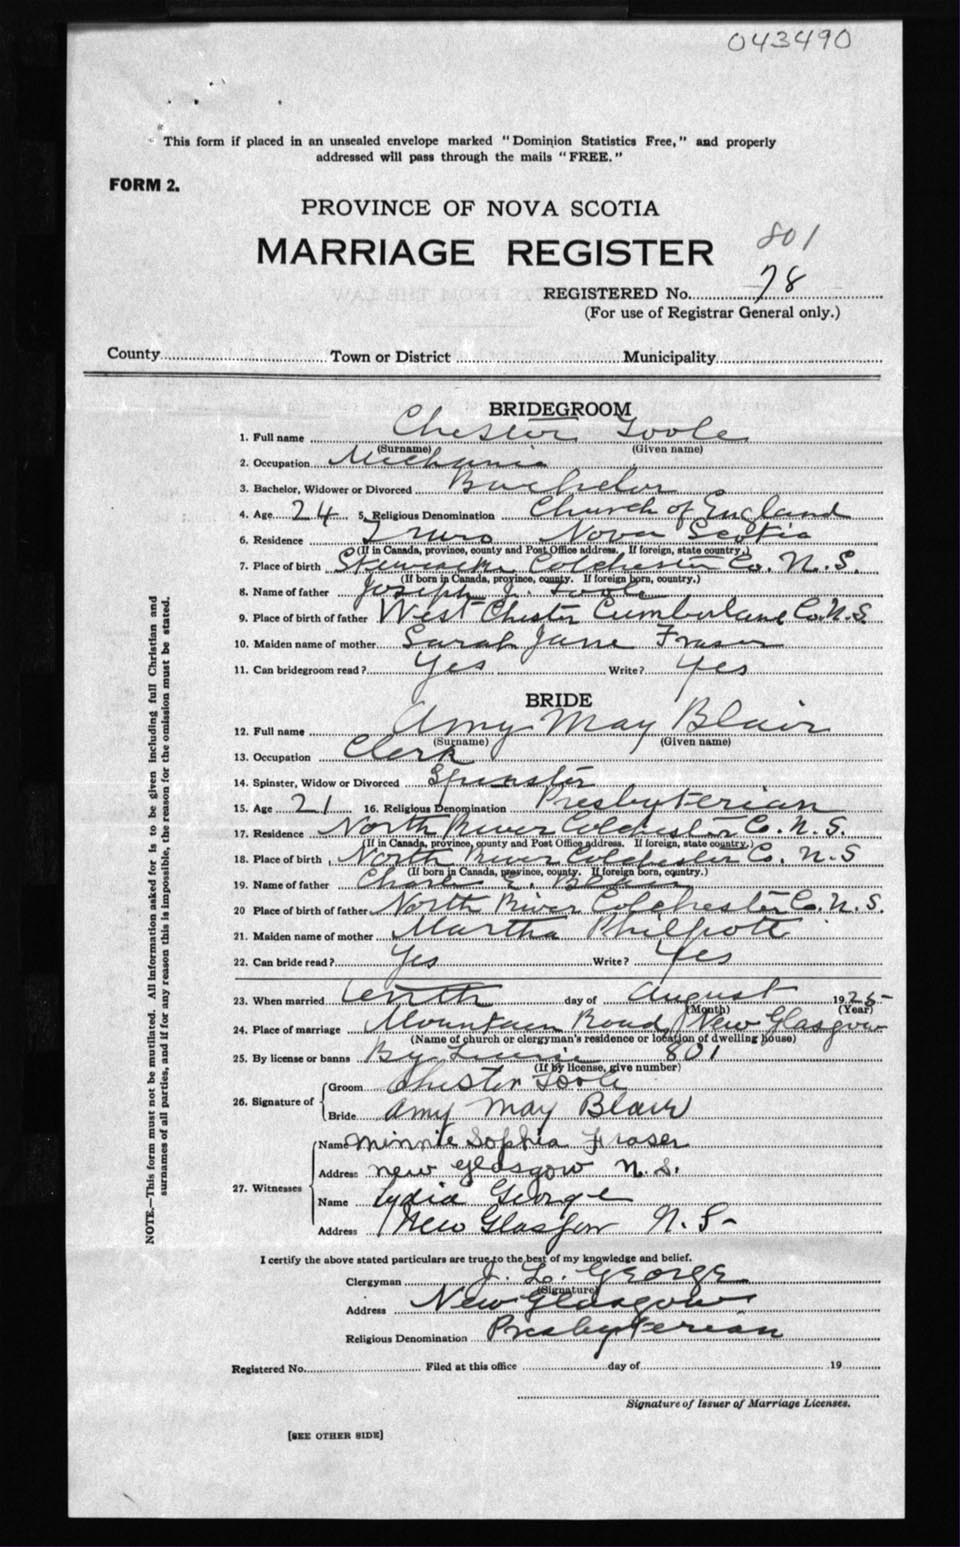 043490
"This form if placed in an unsealed envelope marked "Dominion Statistics Free," and properly
addressed will pass through the mails "FREE."
FORM 2.
PROVINCE OF NOVA SCOTIA
MARRIAGE REGISTER
801
REGISTERED No. 78
(For use of Registrar General only.)
County Town or District Municipality
BRIDEGROOM
1. Full name Chester Toole
(Surname) (Given name)
2. Occupation Mechanic
3. Bachelor, Widower or Divorced Bachelor
4. Age 24 5. Religious Denomination Church of England
6. Residence Truro Nova Scotia
(If in Canada, province, county and Post Office address. If foreign, state country.)
7. Place of birth Stewiacke Colchester Co. N.S.
(If born in Canada, province, county. If foreign born, country.)
8. Name of father Joseph J. Toole
9. Place of birth of father West Chester Cumberland Co. N.S.
10. Maiden name of mother Sarah Jane Fraser
11. Can bridegroom read? Yes Write? Yes
BRIDE
12. Full name Amy May Blair
(Surname) (Given name)
13. Occupation Clerk
14. Spinster, Widow or Divorced Spinster
15. Age 21 16. Religious Denomination Presbyterian
17. Residence North River Colchester Co. N.S.
(If in Canada, province, county and Post Office address. If foreign, state country.)
18. Place of birth North River Colchester Co. N.S
(If born in Canada, province, county. If foreign born, country.)
19. Name of father Charles E. Blair
20 Place of birth of father North River Colchester Co. N.S.
21. Maiden name of mother Martha Philpott
22. Can bride read? Yes Write? Yes
23. When married tenth day of August 1925
(Month) (Year)
24. Place of marriage Mountain Road, New Glasgow
(Name of church or clergyman's residence or location of dwelling house)
25. By license or banns By License 801
(If by license, give number)
26. Signature of
Groom Chester Toole
Bride Amy May Blair
27. Witnesses
Name Minnie Sophia Fraser
Address New Glasgow N.S.
Name Lydia George
Address New Glasgow N.S-
I certify the above stated particulars are true to the best of my knowledge and belief.
Clergyman J. L. George
(Signature)
Address New Glasgow
Religious Denomination Presbyterian
Registered No. Filed at this office day of 19
Signature of Issuer of Marriage Licenses.
[SEE OTHER SIDE]
NOTE.—This form must not be mutilated. All information asked for is to be given including full Christian and
surnames of all parties, and if for any reason this is impossible, the reason for the omission must be stated.